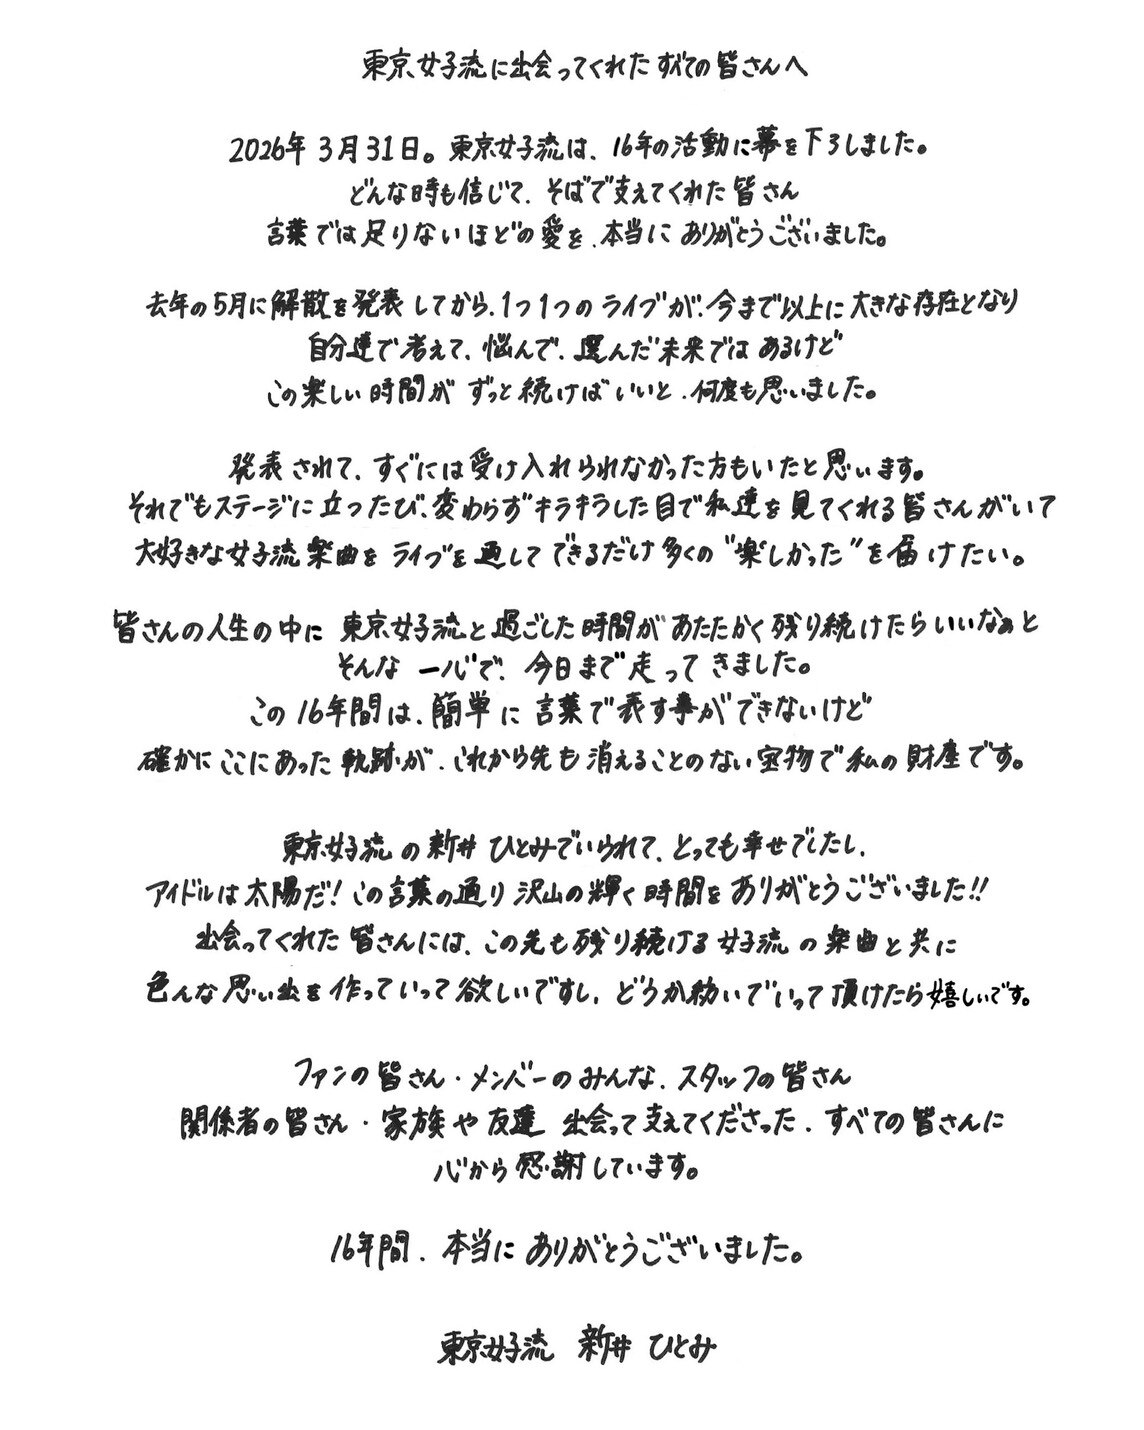 東京女子流に出会ってくれたすべての皆さんへ
2026年3月31日。東京女子流は、16年の活動に幕を下ろしました。
どんな時も信じて、そばで支えてくれた皆さん
言葉では足りないほどの愛を、本当にありがとうございました。
去年の5月に解散を発表してから、1つ1つのライブが、今まで以上に大きな存在となり
自分達で考えて、悩んで、選んだ未来ではあるけど
この楽しい時間がずっと続けばいいと、何度も思いました。
発表されて、すぐには受け入れられなかった方もいたと思います。
それでもステージに立ったび、変わらずキラキラした目で私達を見てくれる皆さんがいて
大好きな女子流楽曲をライブを通してできるだけ多くの"楽しかった"を届けたい。
皆さんの人生の中に東京女子流と過ごした時間があたたかく残り続けたらいいなぁと
そんな一心で、今日まで走ってきました。
この16年間は、簡単に言葉で表す事ができないけど
確かにここにあった軌跡が、これから先も消えることのない宝物で私の財産です。
東京女子流の新井ひとみでいられて、とっても幸せでしたし、
アイドルは太陽だ!この言葉の通り沢山の輝く時間をありがとうございました!!
出会ってくれた皆さんには、この先も残り続ける女子流の楽曲と共に
色んな思い出を作っていって欲しいですし、どうか紡いでいって頂けたら嬉しいです。
ファンの皆さん・メンバーのみんな、スタッフの皆さん
関係者の皆さん・家族や友達 出会って支えてくださった、すべての皆さんに
心から感謝しています。
16年間、本当にありがとうございました。
東京女子流 新井ひとみ